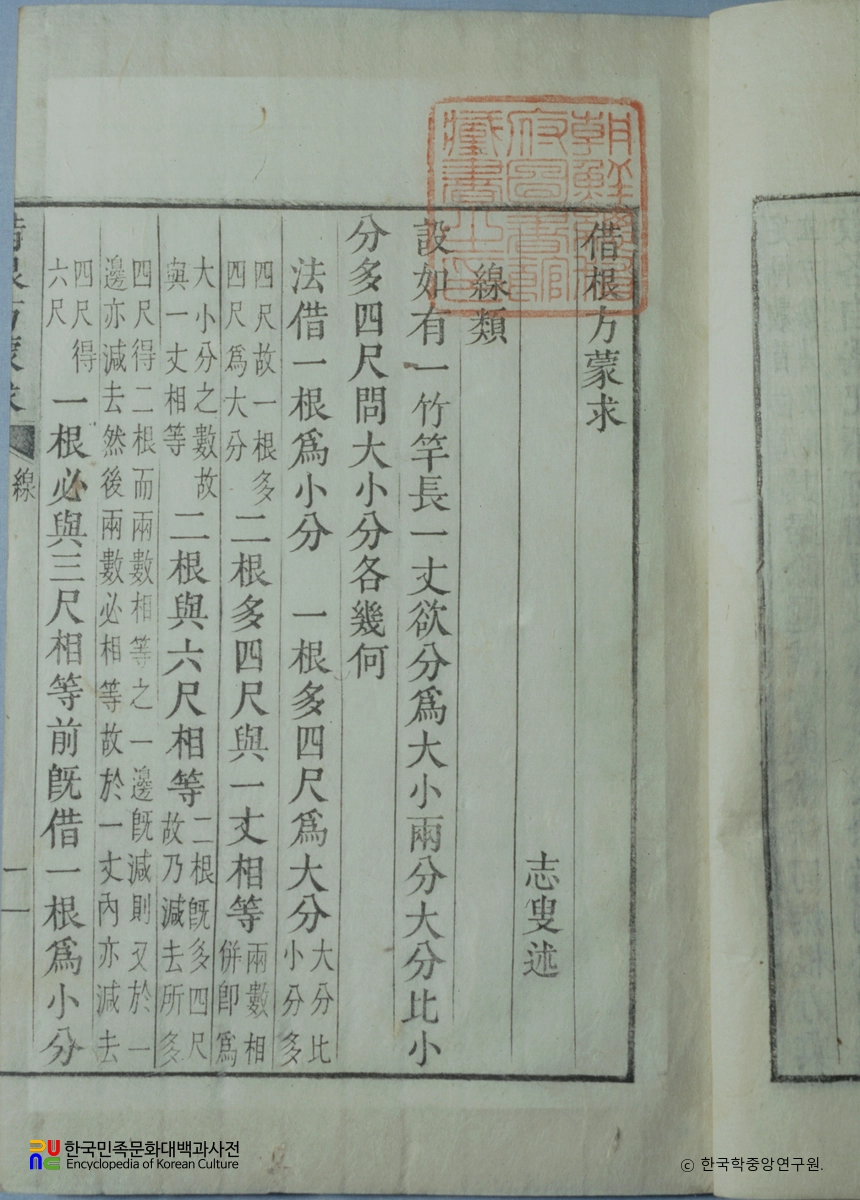 朝鮮總督
府圖書館
藏書之印
借根方蒙求
志叟述
線類
設如有一竹竿長一丈欲分爲大小兩分大分比小
分多四尺問大小分各幾何
法借一根爲小分 一根多四尺爲大分 大分比 小分多
四尺故一根多 四尺爲大分 二根多四尺與一丈相等 兩數相 併卽爲
大小分之數故 與一丈相等 二根與六尺相等 二根旣多四尺 故乃減去所多
四尺得二根而兩數相等之一邊旣減則又於一
邊亦減去然後兩數必相等故於一丈內亦減去
四尺得 六尺 一根必與三尺相等前旣借一根爲小分
借根方蒙求
線
한국민족문화대백과사전
Encyclopedia of Korean Culture
ⓒ 한국학중앙연구원.